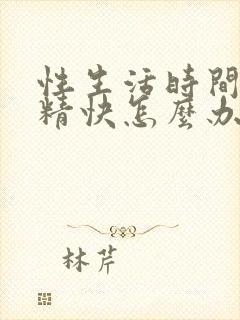 性生活時間
精快怎麼办
林芹